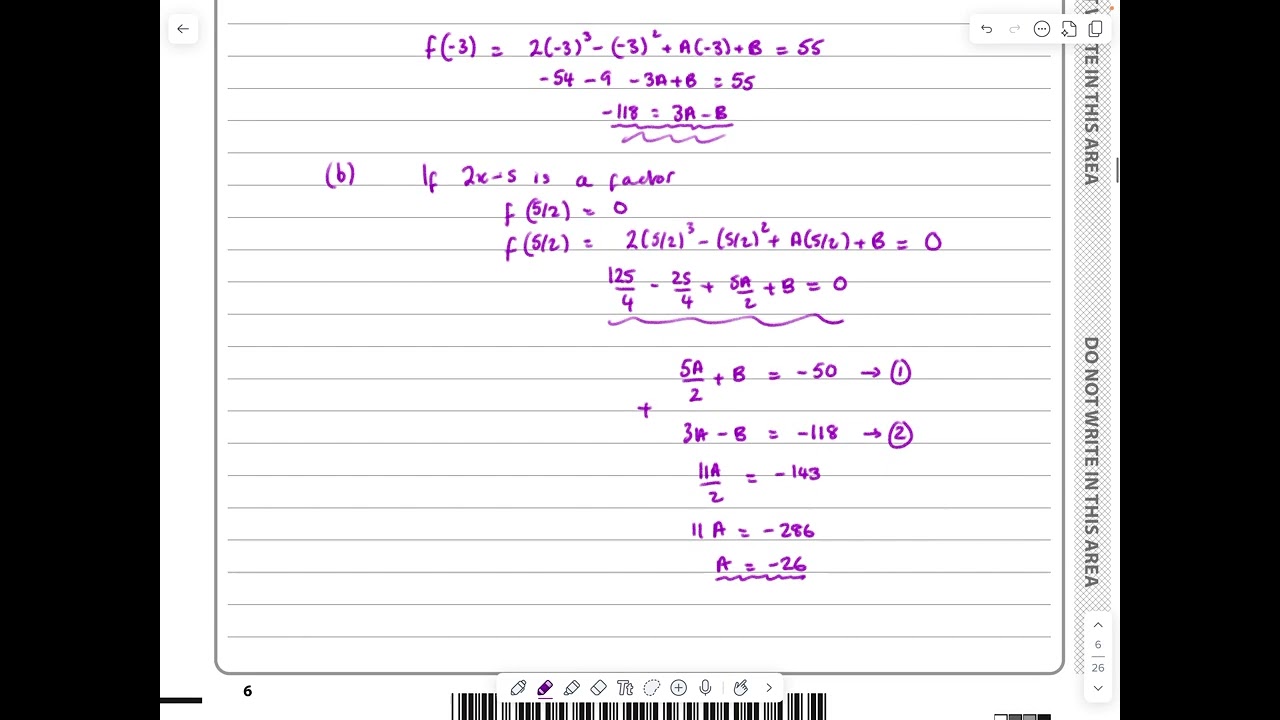 f(-3) = 2(-3)³ - (-3)² + A(-3) + B = 55
-54 - 9 - 3A + B = 55
-118 = 3A - B
(b) If 2x-5 is a factor
f(5/2) = 0
f(5/2) = 2(5/2)³ - (5/2)² + A(5/2) + B = 0
125/4 - 25/4 + 5A/2 + B = 0
5A/2 + B = -50 → ①
+
3A - B = -118 → ②
11A/2 = -143
11A = -286
A = -26
DO NOT WRITE IN THIS AREA
TE IN THIS AREA
6
26
6
Tt